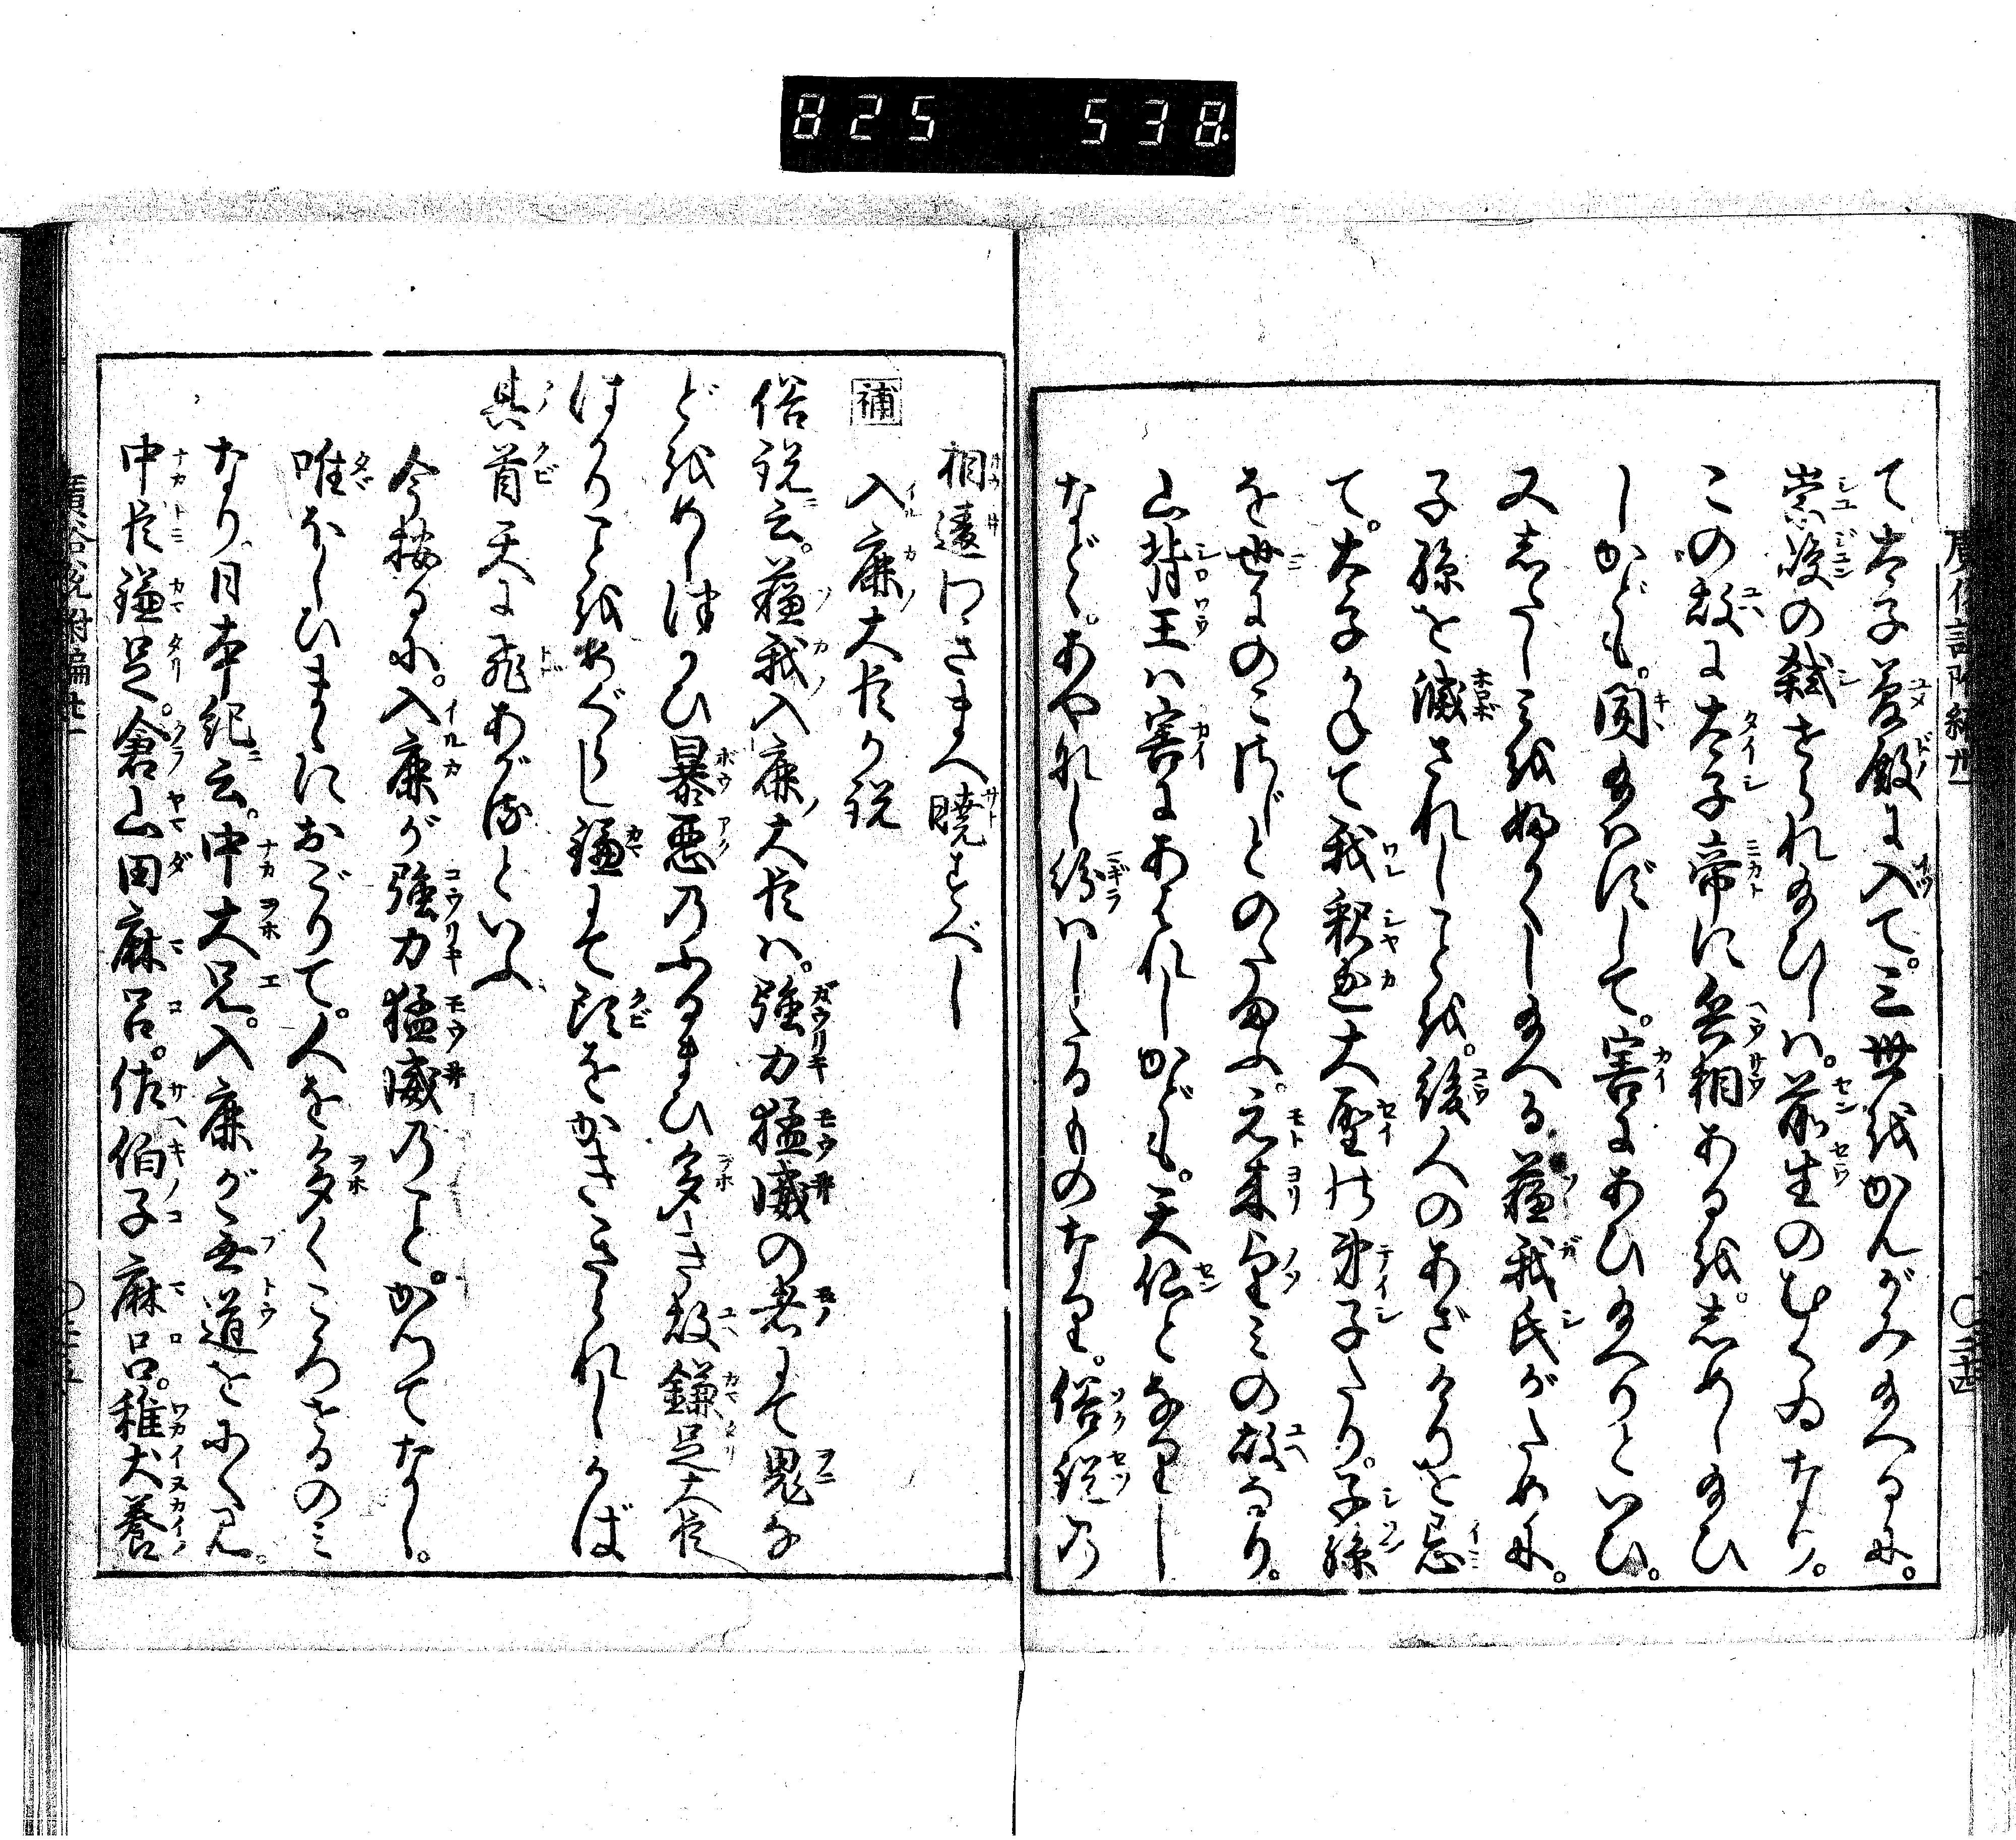 825 538
て太子夢殿に入て。三世をかんがみ玉へるに。
崇峻の弑せられ玉ひしハ。前生のむくゐなり。
この故に太子帝に兵相あるを。しめし玉ひ
しかども。聞玉ハずして。害にあひ玉へりといひ。
又志たしミを婚くし玉へる蘇我氏がために。
子孫を滅されしことを。後人のあざけりを忌
て。太子かねて我釈迦大聖の弟子たり。子孫
を世にのこさじとのたまふ。元来望ミの故なり。
山背王ハ害にあはれしかども。天仙となりし
など。あやかし紛ハしたるものなり。俗説の
相違わきまへ暁すべし
補 入鹿大臣の説
俗説云。蘇我入鹿大臣ハ。強力猛威の者にて鬼な
どをめしつかひ暴悪のふるまひ多き故鎌足大臣
はかりことをめぐらし鎌にて頸をかききられしかば
其首天に飛あがるといふ
今按るに。入鹿が強力猛威のこと。かつてなし。
唯ほしひまゝにおごりて。人を多くころせるのミ
なり。日本紀云。中大兄。入鹿が無道をにくミ。
中臣鎌足。倉山田麻呂。佐伯子麻呂。稚犬養